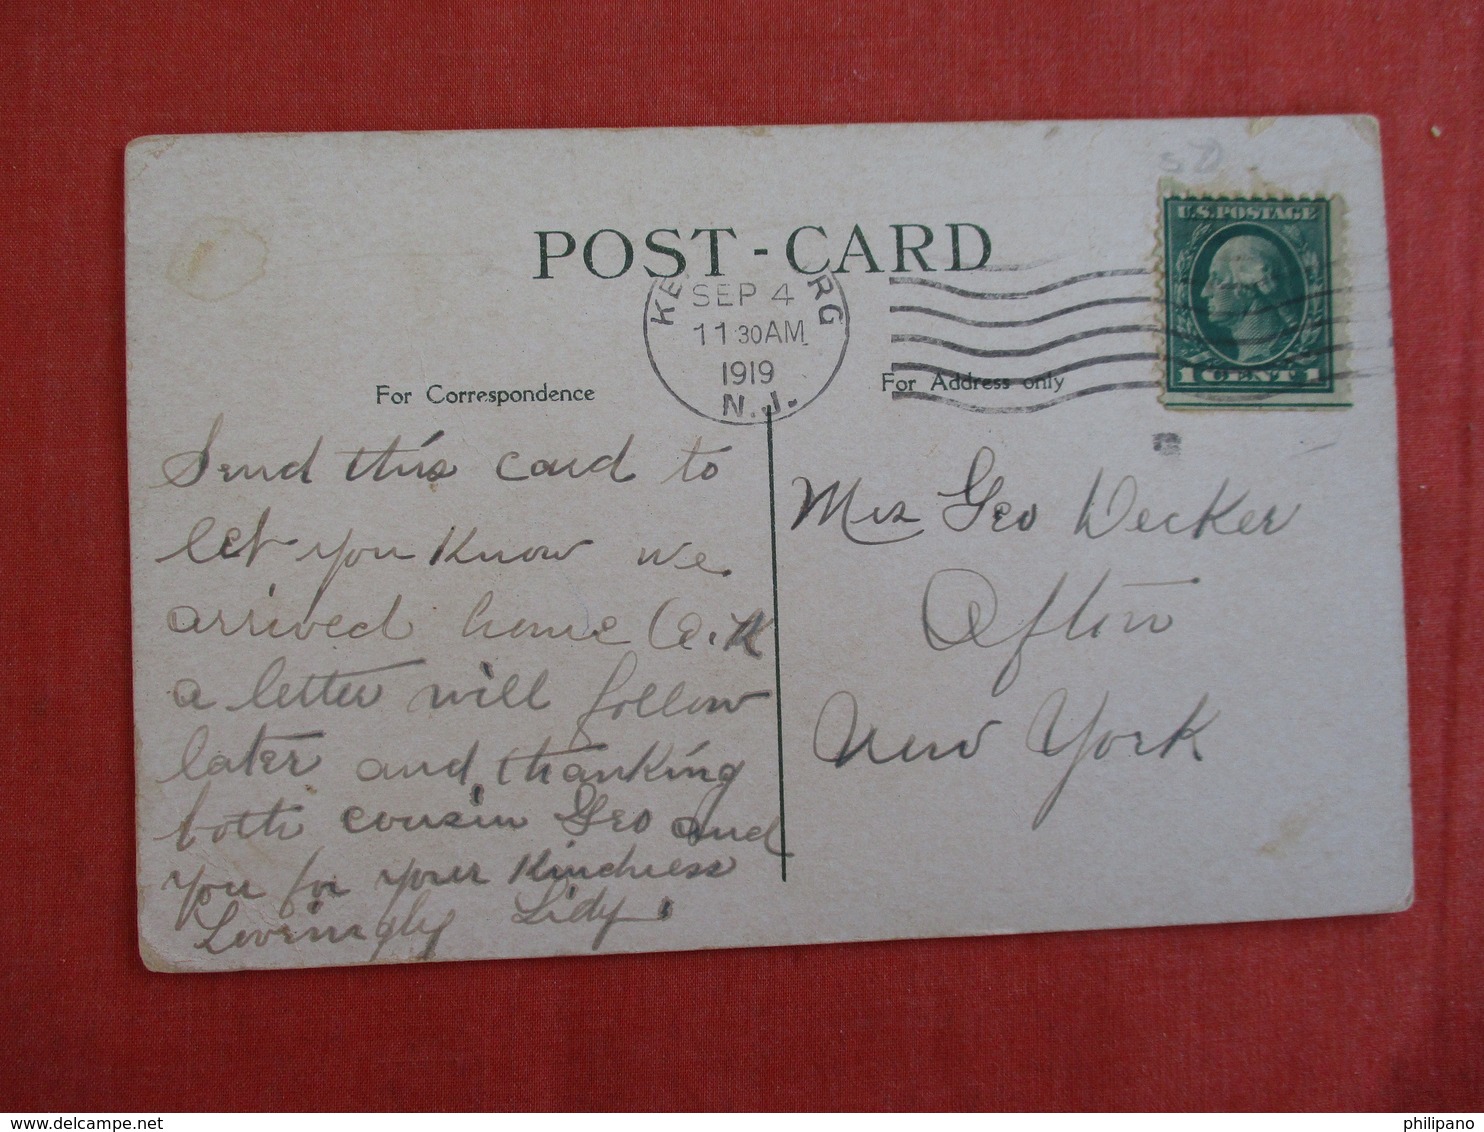 POST-CARD
U.S. POSTAGE
1 CENT 1
SEP 4
11 30 AM
1919
N.J.
For Correspondence
For Address only
Send this card to
let you know we
arrived home O.K
a letter will follow
later and thanking
both cousin Geo and
you for your kindness
Lovingly Lidy.
Mrs Geo Decker
Afton
New York
philipano